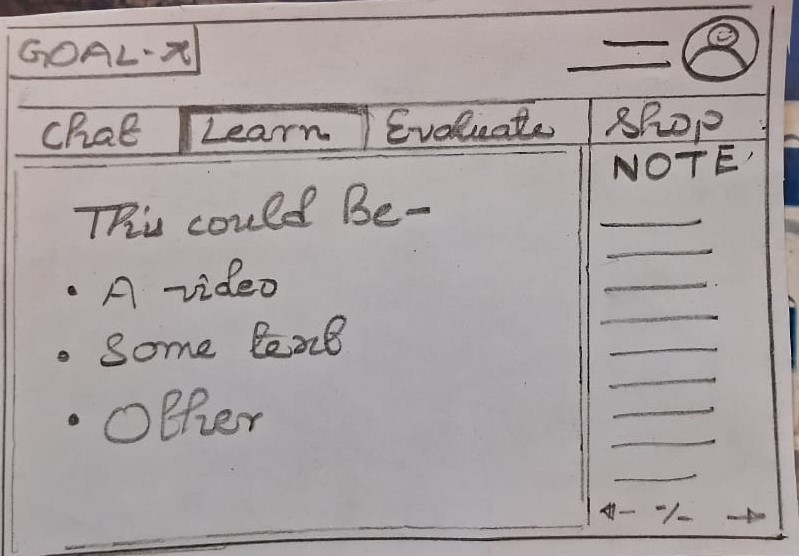 GOAL-x
Chat Learn Evaluate Shop
NOTE
This could Be-
• A video
• Some text
• Other